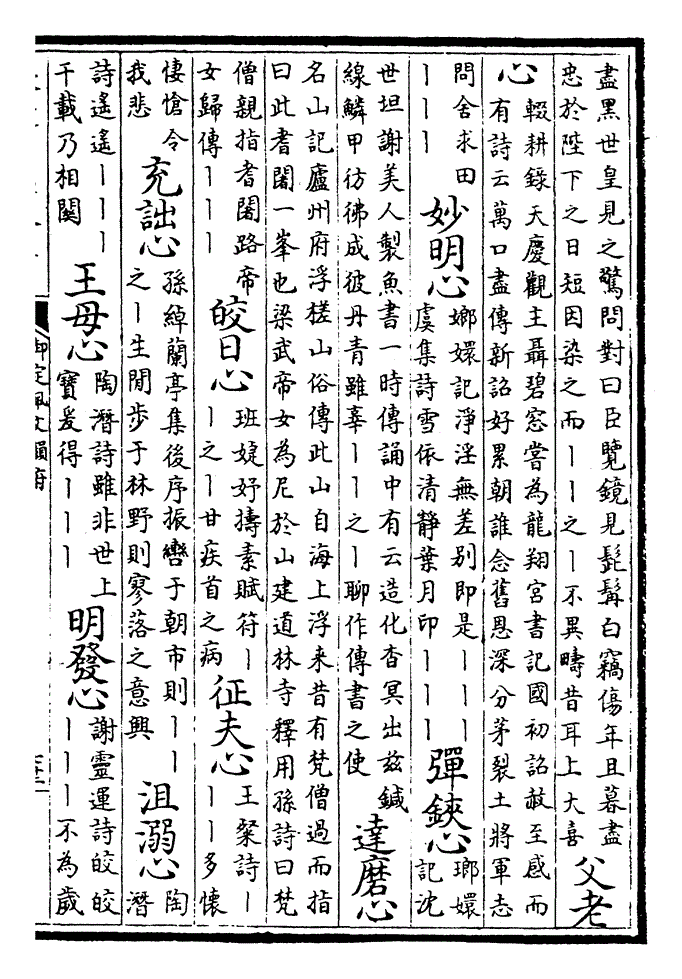 盡黑世皇見之驚問對曰臣覽鏡見髭髯白竊傷年且暮盡
忠於陛下之日短因染之而丨丨之丨不異疇昔耳上大喜
父老
心
輟耕錄天慶觀主聶碧窓嘗為龍翔宮書記國初詔赦至感而
有詩云萬口盡傳新詔好累朝誰念舊恩深分茅裂土將軍志
問舍求田
丨丨丨
妙明心
嫏嬛記淨淫無差別即是丨丨丨
虞集詩雪依清靜葉月印丨丨丨
彈鋏心
瑯嬛
記沈
世坦謝美人製魚書一時傳誦中有云造化杳冥出茲鍼
線鱗甲彷彿成彼丹青雖辜丨丨之丨聊作傳書之使
達磨心
名山記廬州府浮槎山俗傳此山自海上浮来昔有梵僧過而指
曰此耆闍一峯也梁武帝女為尼於山建道林寺釋用孫詩曰梵
僧親指耆闍路帝
女歸傳丨丨丨
皎日心
班婕妤擣素賦符丨
丨之丨甘疾首之病
征夫心
王粲詩丨
丨丨多懷
悽愴令
我悲
充詘心
孫綽蘭亭集後序振轡于朝市則丨丨
之丨生閒步于林野則寥落之意興
沮溺心
陶
潛
詩遙遙丨丨丨
千載乃相關
王母心
陶潛詩雖非世上
寶爰得丨丨丨
明發心
謝靈運詩皎皎
丨丨丨不為歲
御定佩文韻府